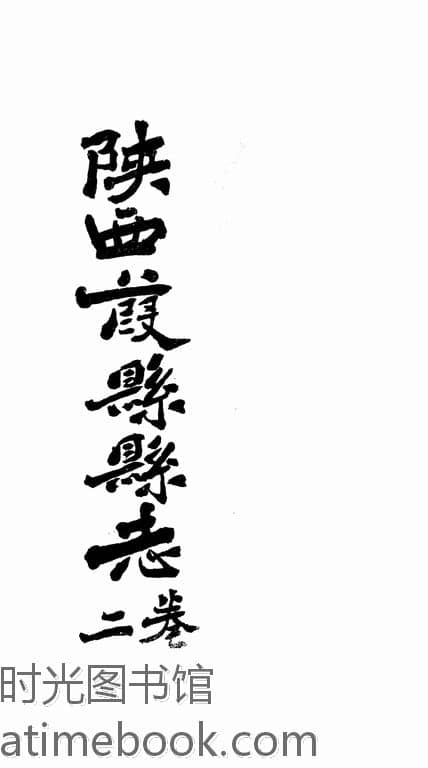 陝西葭縣縣志
二卷
时光图书馆
atimebook.com